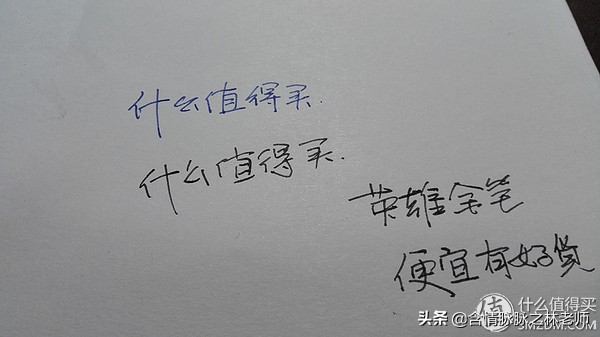 什么值得买.
什么值得买.
英雄金笔
便宜有好货
值 什么值得买
SMZDM.COM
头条 @含情脉脉之林老师